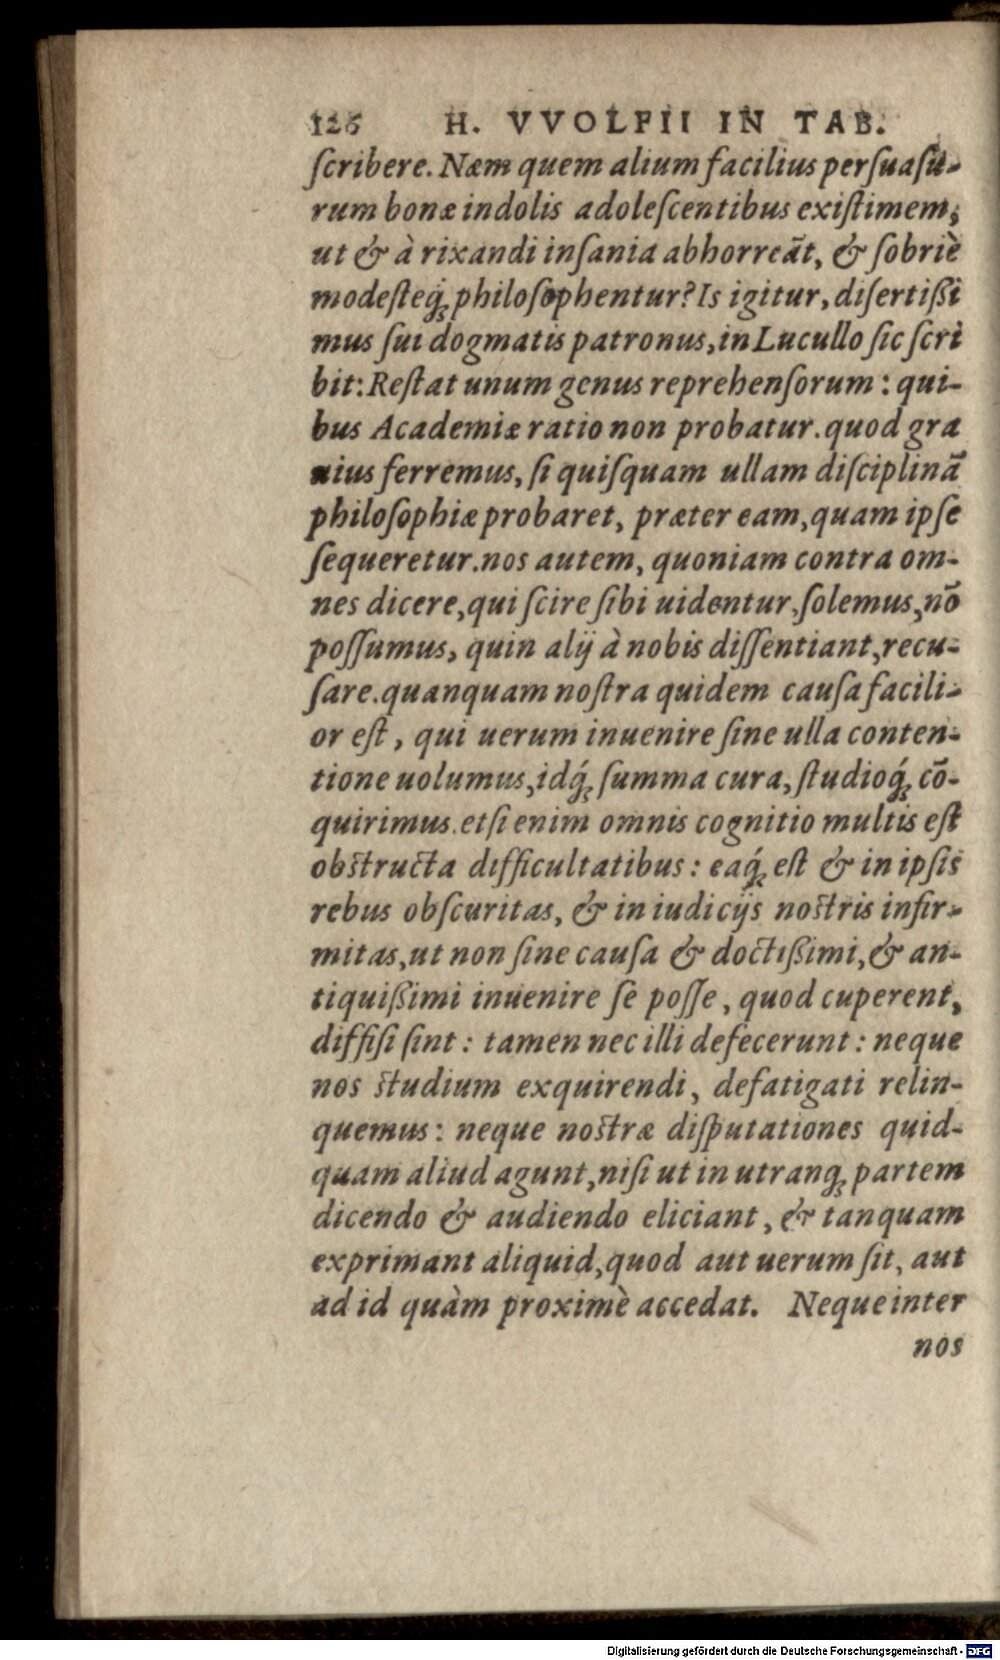 126 H. VVOLFII IN TAB.
ſcribere. Næm quem alium facilius perſuaſu-
rum bonæ indolis adoleſcentibus exiſtimem,
ut & à rixandi inſania abhorreãt, & ſobriè
modeſteq́; philoſophentur? Is igitur, diſertißi
mus ſui dogmatis patronus, in Lucullo ſic ſcri
bit: Reſtat unum genus reprehenſorum: qui-
bus Academiæ ratio non probatur. quod gra
uius ferremus, ſi quiſquam ullam diſciplinã
philoſophiæ probaret, præter eam, quam ipſe
ſequeretur. nos autem, quoniam contra om-
nes dicere, qui ſcire ſibi uidentur, ſolemus, nõ
poſſumus, quin alij à nobis diſſentiant, recu-
ſare. quanquam noſtra quidem cauſa facili-
or eſt, qui uerum inuenire ſine ulla conten-
tione uolumus, idq́; ſumma cura, ſtudioq́; cõ-
quirimus. etſi enim omnis cognitio multis eſt
obſtructa difficultatibus: eaq́; eſt & in ipſis
rebus obſcuritas, & in iudicijs noſtris infir-
mitas, ut non ſine cauſa & doctißimi, & an-
tiquißimi inuenire ſe poſſe, quod cuperent,
diffiſi ſint: tamen nec illi defecerunt: neque
nos ſtudium exquirendi, defatigati relin-
quemus: neque noſtræ diſputationes quid-
quam aliud agunt, niſi ut in utranq; partem
dicendo & audiendo eliciant, & tanquam
exprimant aliquid, quod aut uerum ſit, aut
ad id quàm proximè accedat. Neque inter
nos
Digitalisierung gefördert durch die Deutsche Forschungsgemeinschaft - DFG